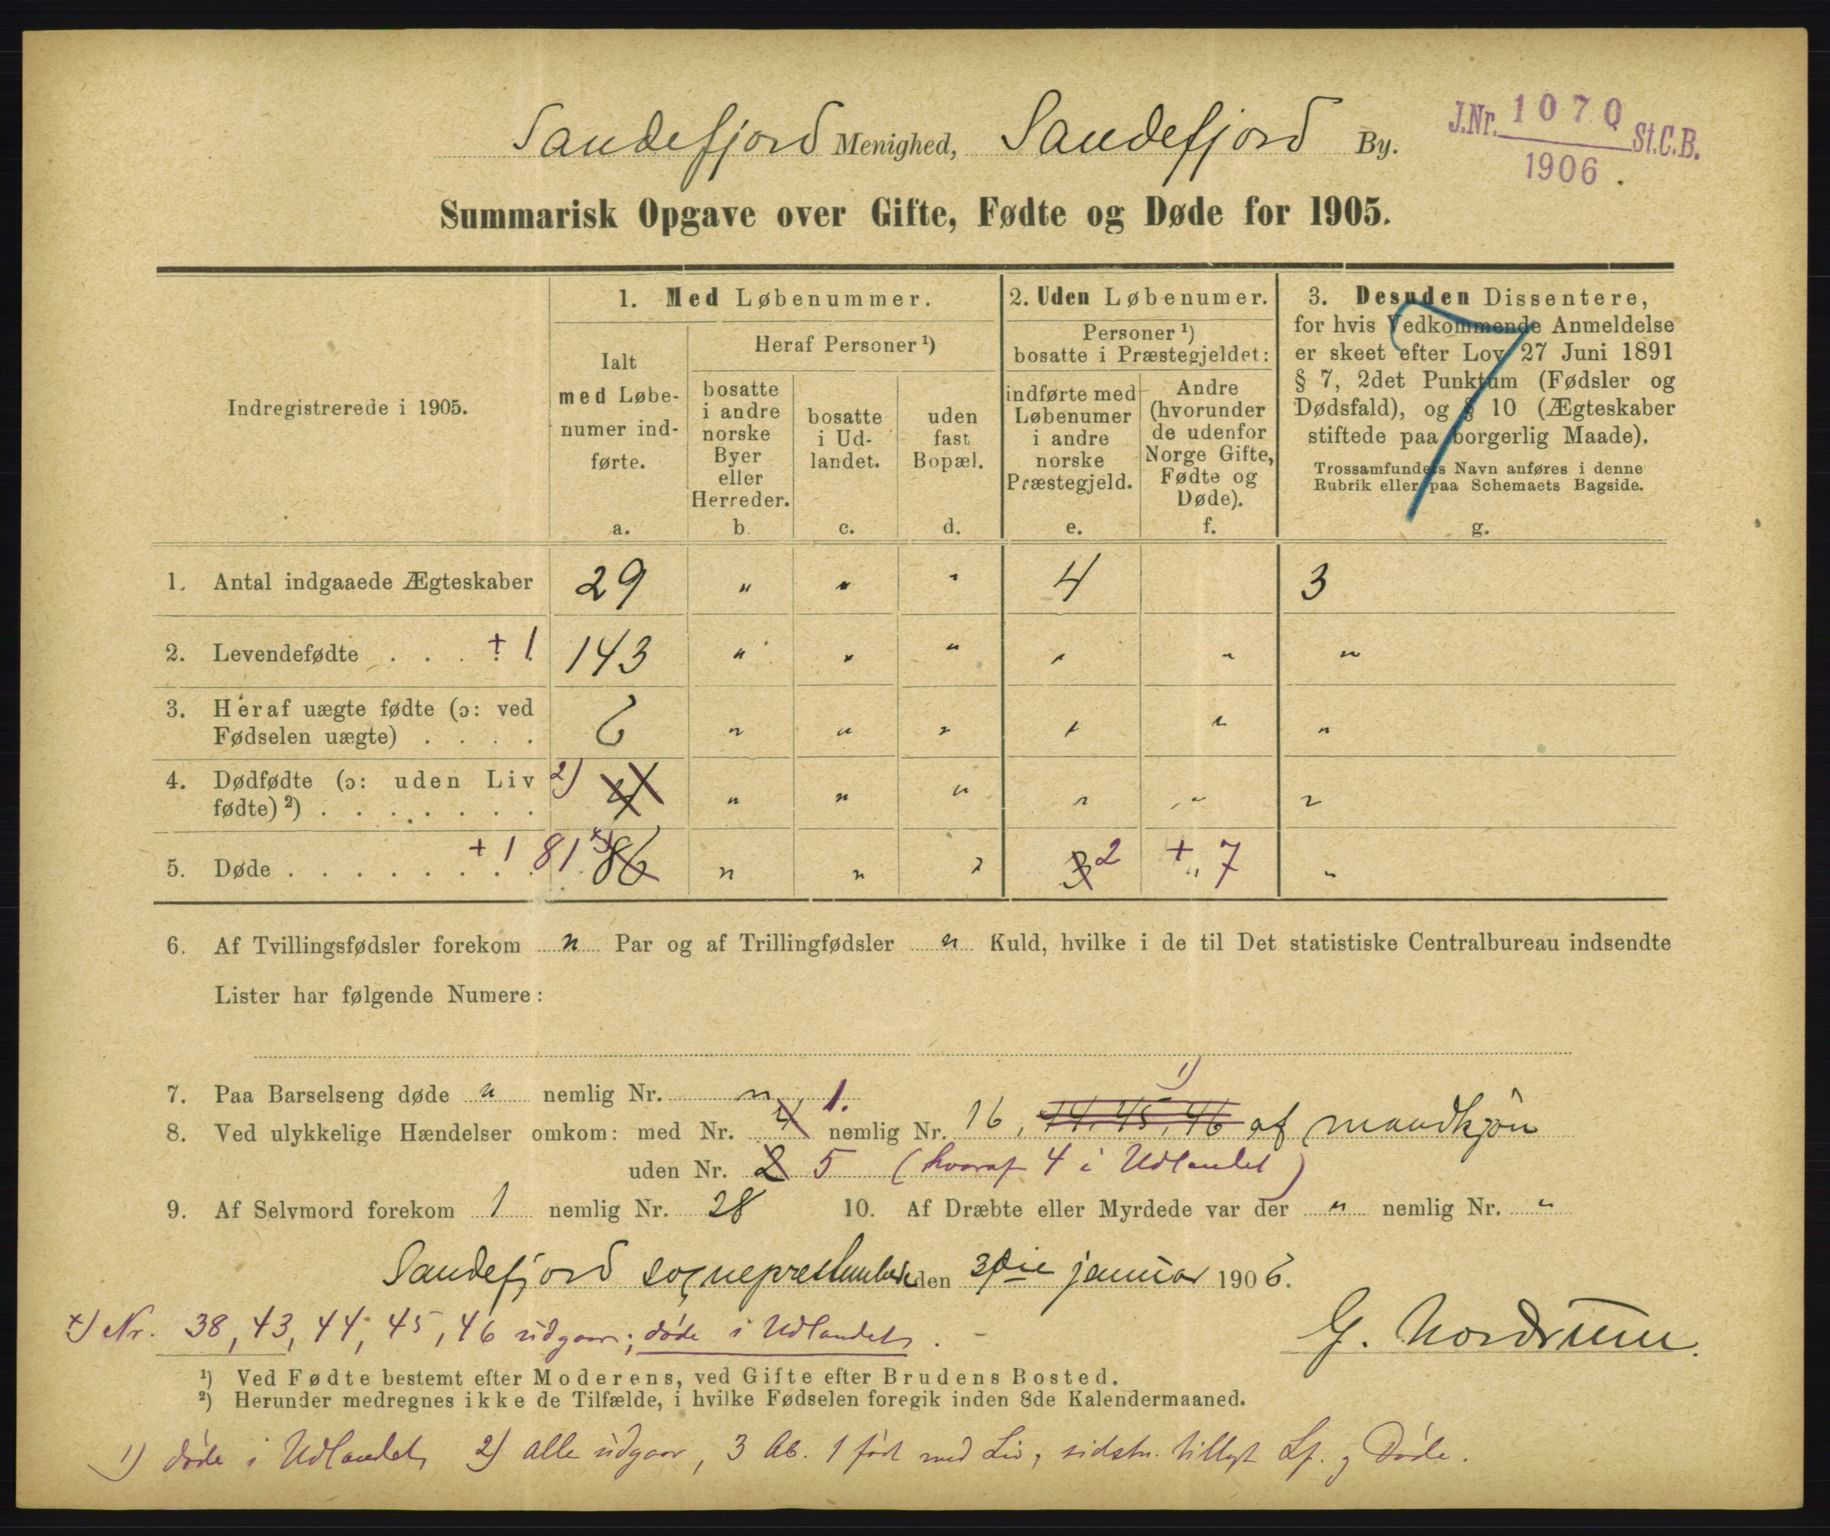 Sandefjord Menighed, Sandefjord By.
J.Nr. 1070 St.C.B.
1906.
Summarisk Opgave over Gifte, Fødte og Døde for 1905.
Indregistrerede i 1905.
1. Med Løbenummer.
Ialt
med Løbe-
numer ind-
førte.
a.
Heraf Personer ¹)
bosatte
i andre
norske
Byer
eller
Herreder.
b.
bosatte
i Ud-
landet.
c.
uden
fast
Bopæl.
d.
2. Uden Løbenumer.
Personer ¹)
bosatte i Præstegjeldet:
indførte med
Løbenumer
i andre
norske
Præstegjeld.
e.
Andre
(hvorunder
de udenfor
Norge Gifte,
Fødte og
Døde).
f.
3. Desuden Dissentere,
for hvis Vedkommende Anmeldelse
er skeet efter Lov 27 Juni 1891
§ 7, 2det Punktum (Fødsler og
Dødsfald), og § 10 (Ægteskaber
stiftede paa borgerlig Maade).
Trossamfundets Navn anføres i denne
Rubrik eller paa Schemaets Bagside.
g.
7
1. Antal indgaaede Ægteskaber 29 " " " 4 3
2. Levendefødte . . . . . + 1 143 " " " " " "
3. Heraf uægte fødte (ɔ: ved
Fødselen uægte) . . . . 6 " " " " " "
4. Dødfødte (ɔ: uden Liv
fødte) ²) . . . . . . . 2) 4 " " " " " "
5. Døde . . . . . . . + 1 81 x) 86 " " " 3 2 + " 7 "
6. Af Tvillingsfødsler forekom " Par og af Trillingfødsler " Kuld, hvilke i de til Det statistiske Centralbureau indsendte
Lister har følgende Numere:
7. Paa Barselseng døde " nemlig Nr. "
8. Ved ulykkelige Hændelser omkom: med Nr. 4 1. nemlig Nr. 16, 44, 45, 46 1) af mandkjön
uden Nr. 2 5 (hvoraf 4 i Udlandet)
9. Af Selvmord forekom 1 nemlig Nr. 28 10. Af Dræbte eller Myrdede var der " nemlig Nr. "
Sandefjord sogneprestembede den 31te januar 1906.
G. Nordrum.
x) Nr. 38, 43, 44, 45, 46 udgaar; døde i Udlandet.
¹) Ved Fødte bestemt efter Moderens, ved Gifte efter Brudens Bosted.
²) Herunder medregnes ikke de Tilfælde, i hvilke Fødselen foregik inden 8de Kalendermaaned.
1) døde i Udlandet, 2) alle udgaar, 3 Ab. 1 født med Liv, sidstn. tillagt Lf. og Døde.